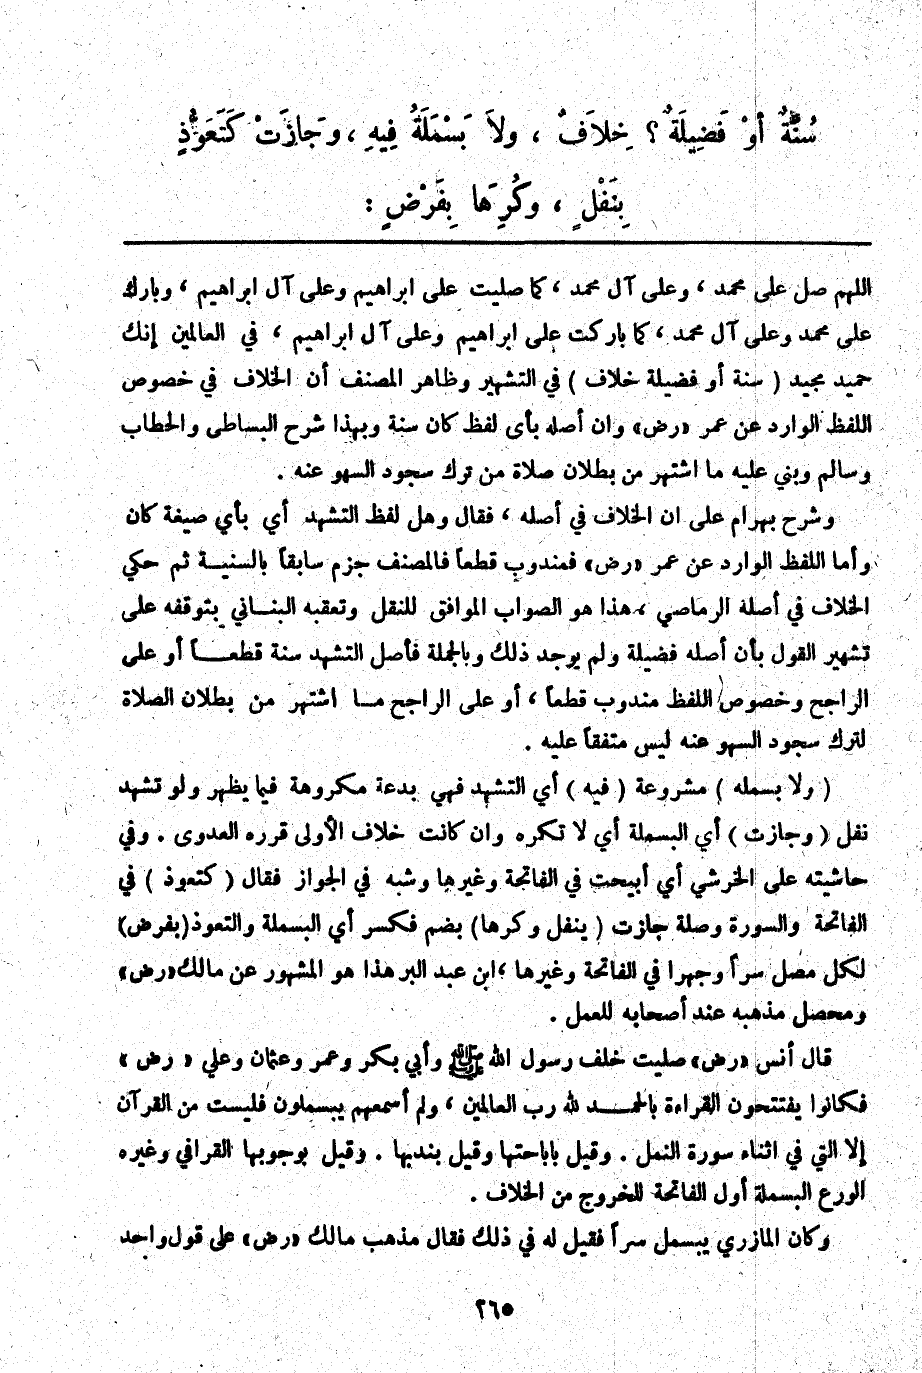 سُنَّةٌ أوْ فَضِيلَةٌ ؟ خِلاَفٌ ، ولاَ بَسْمَلَةُ فِيهِ ، وَجازَتْ كَتَعَوُّذٍ
بِنَفْلٍ ، وكُرِهَا بِفَرْضٍ :
اللهم صل على محمد ، وعلى آل محمد ، كما صليت على ابراهيم وعلى آل ابراهيم ، وبارك
على محمد وعلى آل محمد ، كما باركت على ابراهيم وعلى آل ابراهيم ، في العالمين إنك
حميد مجيد ( سنة أو فضيلة خلاف ) في التشهير وظاهر المصنف أن الخلاف في خصوص
اللفظ الوارد عن عمر «رض» وان أصله بأى لفظ كان سنة وبهذا شرح البساطى والحطاب
وسالم وبني عليه ما اشتهر من بطلان صلاة من ترك سجود السهو عنه .
وشرح بهرام على ان الخلاف في أصله ، فقال وهل لفظ التشهد أي بأي صيغة كان
وأما اللفظ الوارد عن عمر «رض» فمندوب قطعاً فالمصنف جزم سابقاً بالسنيــة ثم حكي
الخلاف في أصله الرماصي ، هذا هو الصواب الموافق للنقل وتعقبه البنــاني بتوقفه على
تشهير القول بأن أصله فضيلة ولم يوجد ذلك وبالجملة فأصل التشهد سنة قطعــاً أو على
الراجح وخصوص اللفظ مندوب قطعاً ، أو على الراجح مــا اشتهر من بطلان الصلاة
لترك سجود السهو عنه ليس متفقاً عليه .
( ولا بسمله ) مشروعة ( فيه ) أي التشهد فهي بدعة مكروهة فيما يظهر ولو تشهد
نفل ( وجازت ) أي البسملة أي لا تكره وان كانت خلاف الأولى قرره العدوى . وفي
حاشيته على الخرشي أي أبيحت في الفاتحة وغيرها وشبه في الجواز فقال ( كتعوذ ) في
الفاتحة والسورة وصلة جازت ( ينفل وكرها) بضم فكسر أي البسملة والتعوذ(بفرض)
لكل مصل سراً وجهرا في الفاتحة وغيرها ،ابن عبد البر هذا هو المشهور عن مالك«رض»
ومحصل مذهبه عند أصحابه للعمل .
قال أنس «رض» صليت خلف رسول الله ﷺ وأبي بكر وعمر وعثمان وعلي « رض »
فكانوا يفتتحون القراءة بالحمــد لله رب العالمين ، ولم أسمعهم يبسملون فليست من القرآن
إلا التي في اثناء سورة النمل . وقيل باباحتها وقيل بندبها . وقيل بوجوبها القرافي وغيره
الورع البسملة أول الفاتحة للخروج من الخلاف .
وكان المازري يبسمل سراً فقيل له في ذلك فقال مذهب مالك «رض» على قول واحد
٢٦٥